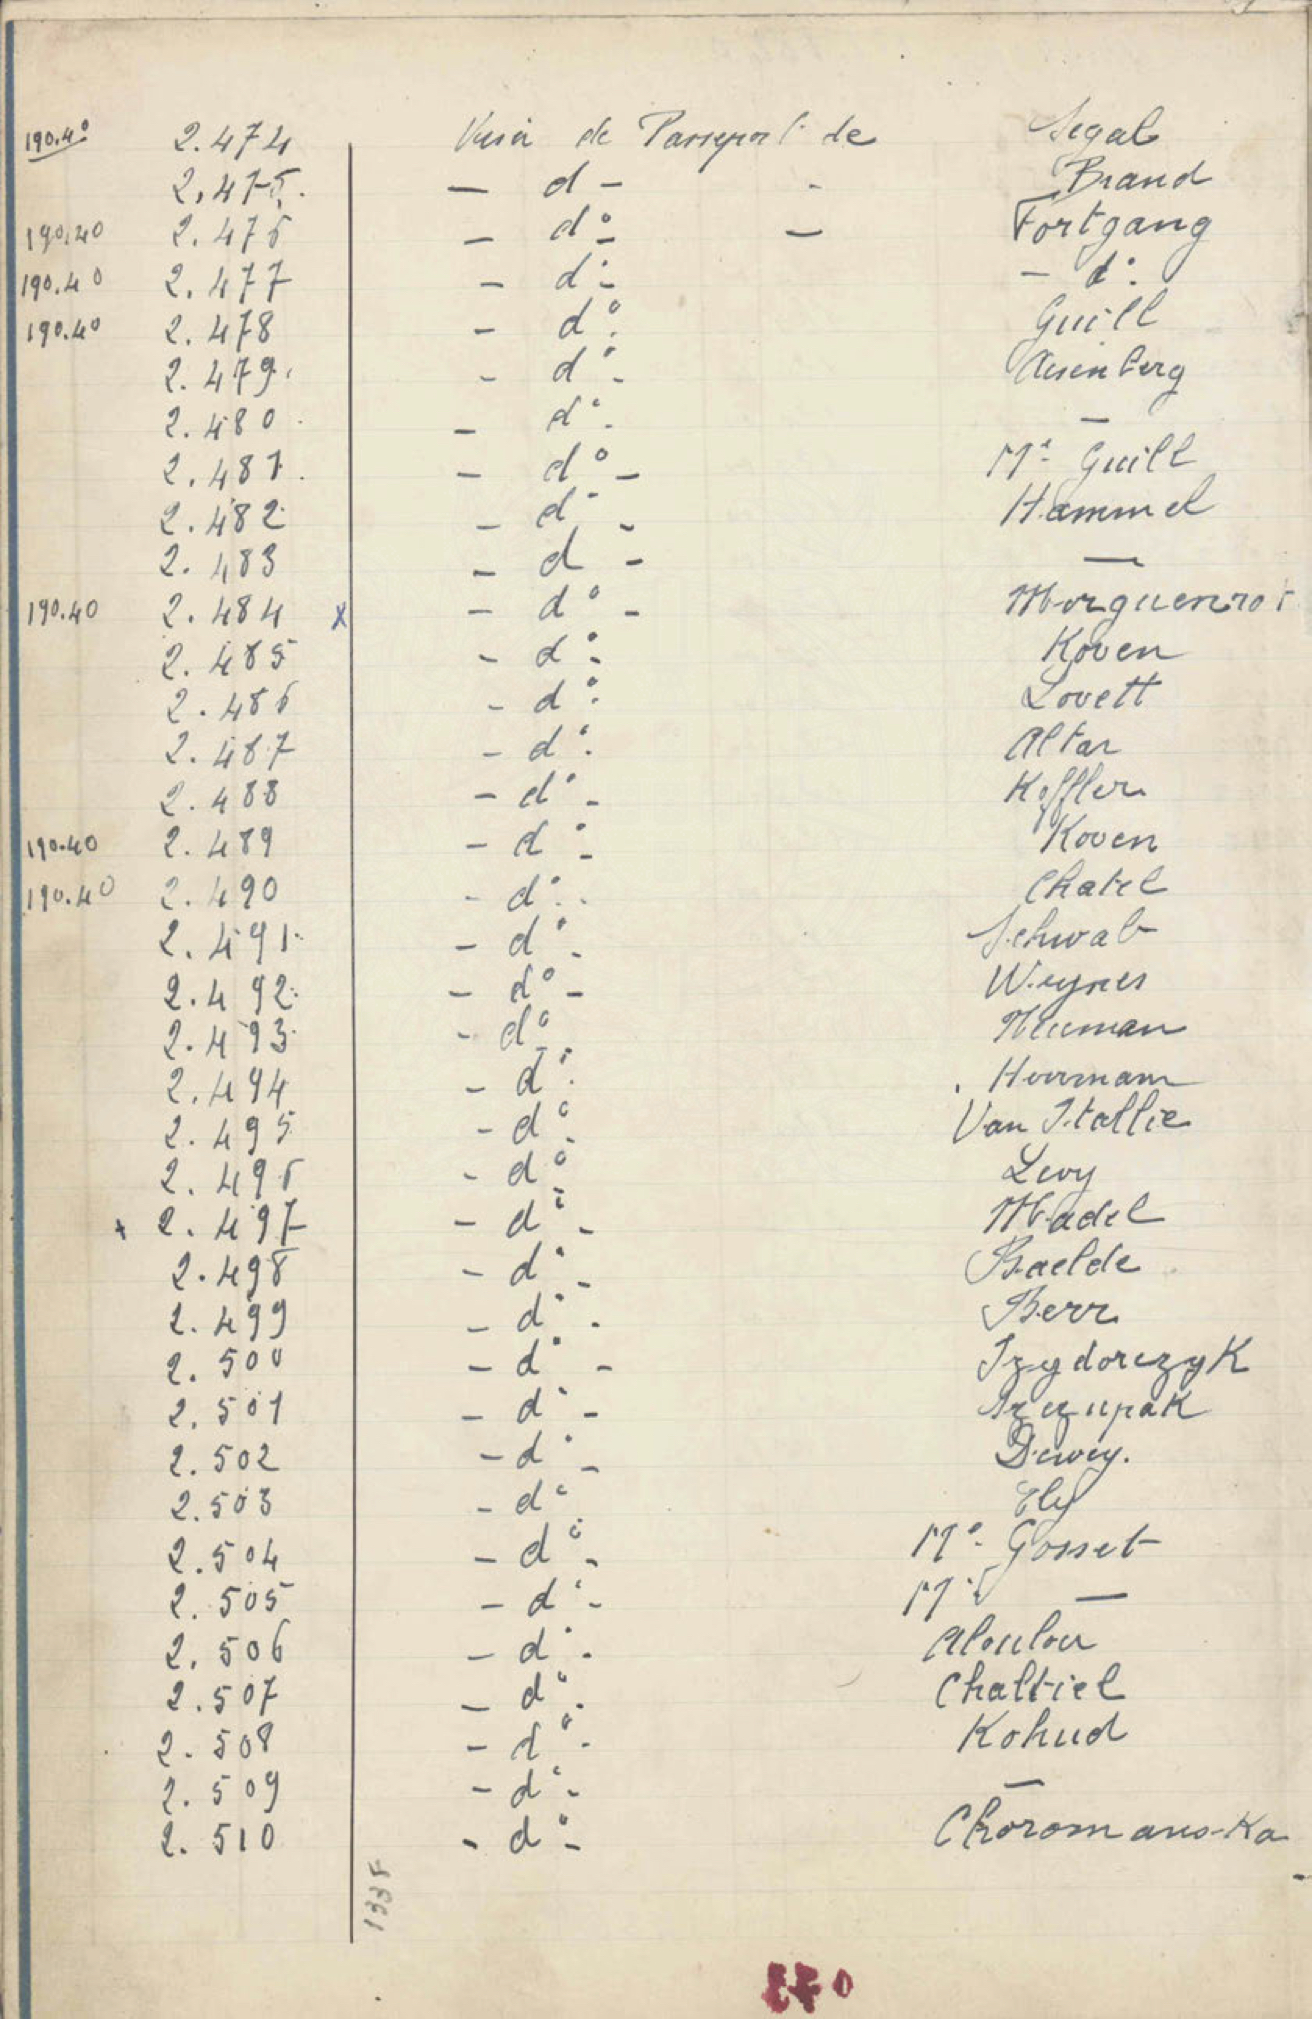 190.40 2.474 Visa de Passeport de Segal
2.475. — d — - Brand
190.40 2.476 — d° — — Fortgang
190.40 2.477 — d° — — d°.
190.40 2.478 — d°. Guill
2.479. — d° — Aisenberg
2.480. — d°. —
2.481. — d° — Me Guill
2.482 — d° — Hammel
2.483 — d — —
190.40 2.484 x — d° — Morguenrot
2.485 — d° — Koven
2.486 — d°. Lovett
2.487 — d°. Altar
2.488 — d° — Koffler
190.40 2.489 — d° — Koven
190.40 2.490 — d°.. Chatel
2.491. — d° — Schwab
2.492. — d° — Weynes
2.493. — d°. Neuman
2.494 — d°. Herrmann
2.495 — d°. Van Itallie
2.496 — d° Levy
+ 2.497 — d° — Madel
2.498 — d° — Baelde
2.499 — d°. Berr
2.500 — d° — Izydorczyk
2.501 — d° — Szczupak
2.502 — d° — Dewey.
2.503 — d°. Ely
2.504 — d° — Me Gosset
2.505 — d° — Mr —
2.506 — d°. Aboulou
2.507 — d°. Chaltiel
2.508 — d°. Kohud
2.509 — d° — —
2.510 - d° — Choromans-Ka
1338